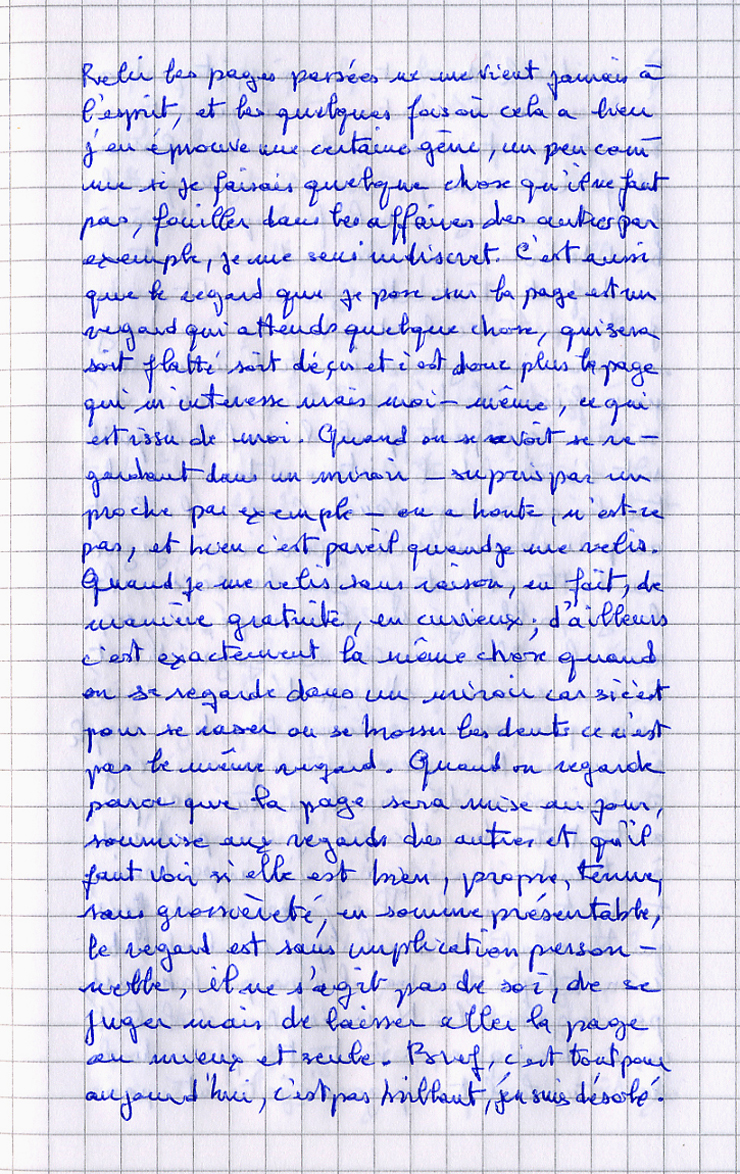 Relire les pages passées ne me vient jamais à
l'esprit, et les quelques fois où cela a lieu
j'en éprouve une certaine gêne, un peu com-
me si je faisais quelque chose qu'il ne faut
pas, fouiller dans les affaires des autres par
exemple, je me sens indiscret. C'est aussi
que le regard que je pose sur la page est un
regard qui attends quelque chose, qui sera
soit flatté soit déçu et c'est donc plus la page
qui m'interesse mais moi-même, ce qui
est issu de moi. Quand on se revoit se re-
gardant dans un miroir - supris par un
proche par exemple - on a honte, n'est-ce
pas, et bien c'est pareil quand je me relis.
Quand je me relis sans raison, en fait, de
manière gratuite, en curieux ; d'ailleurs
c'est exactement la même chose quand
on se regarde dans un miroir car si c'est
pour se raser ou se brosser les dents ce n'est
pas le même regard. Quand on regarde
parce que la page sera mise au jour,
soumise aux regards des autres et qu'il
faut voir si elle est bien, propre, tenue,
sans grossièreté, en somme présentable,
le regard est sans implication person-
nelle, il ne s'agit pas de soi, de se
juger mais de laisser aller la page
au mieux et seule. Bref, c'est tout pour
aujourd'hui, c'est pas brillant, j'en suis désolé.